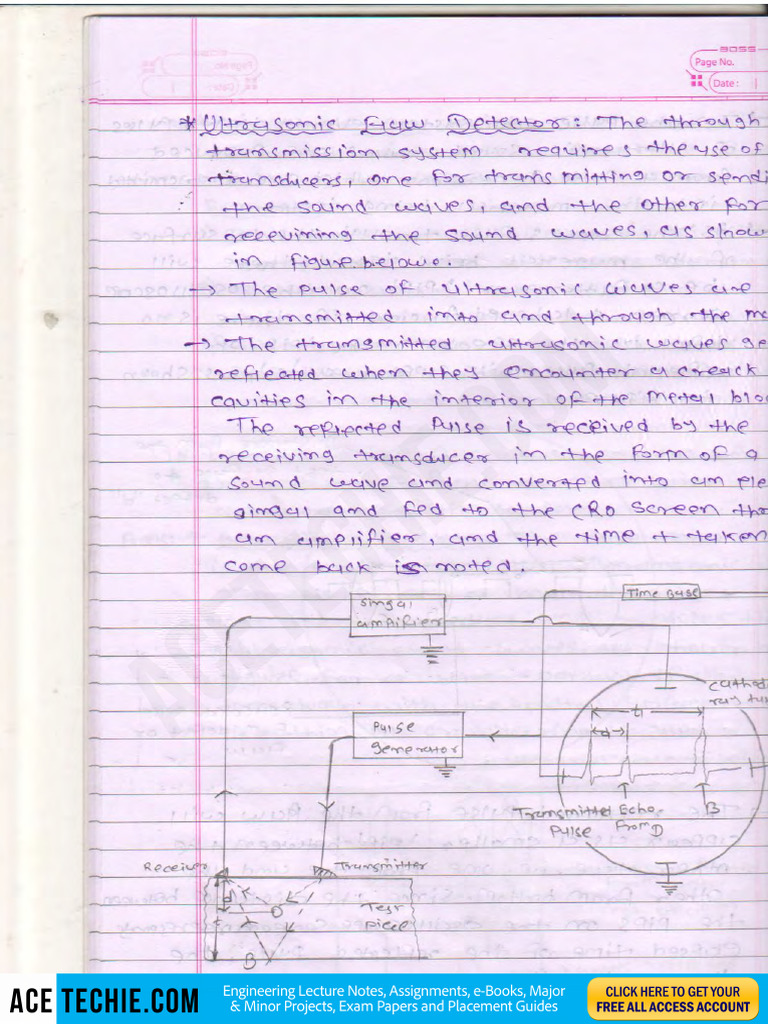 BOSS
Page No.
Date :
* Ultrasonic Flaw Detector: The through
transmission system requires the use of
transducers, one for transmitting or sendi
the sound waves, and the other for
receivining the sound waves, as show
in figure. below.
→ The pulse of Ultrasonic waves are
transmitted into and through the ma
→ The transmitted ultrasonic waves ge
reflected when they encounter a creack
cavities in the interior of the metal bloc
The reflected Pulse is received by the
receiving transducer in the form of a
sound wave and converted into an ele
singal and fed to the CRO screen thr
an amplifier, and the time t taken
come back is noted.
Time Base
Singal
amplifier
Cathod
ray tu
t1
d
Pulse
generator
Transmitted
Pulse
Echo
From D
B
Receiver
Transmitter
d
t
D
Test
piece
B
ACE TECHIE.COM
Engineering Lecture Notes, Assignments, e-Books, Major
& Minor Projects, Exam Papers and Placement Guides
CLICK HERE TO GET YOUR
FREE ALL ACCESS ACCOUNT